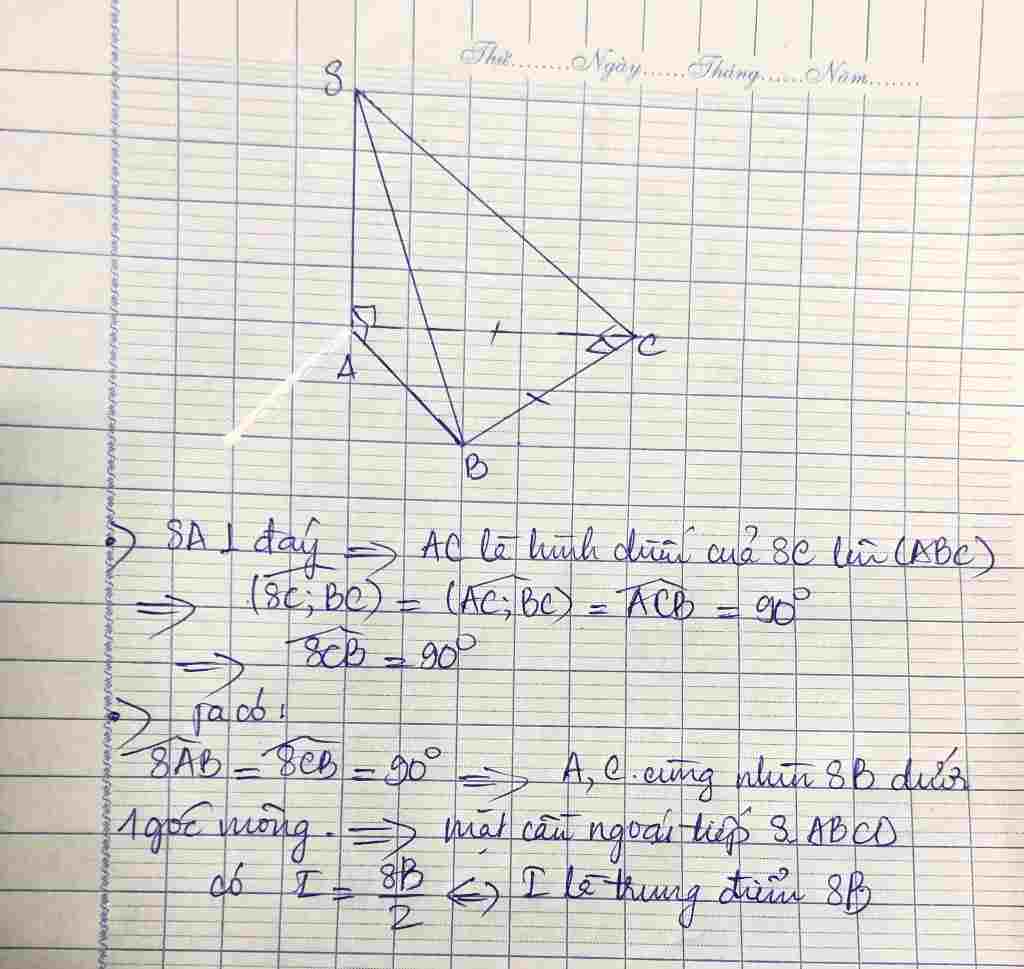 Thứ........Ngày......Tháng......Năm.......
S
A
C
B
SA ⊥ đáy ⇒ AC là hình chiếu của SC lên (ABC)
⇒ (SC; BC) = (AC; BC) = ACB = 90°
⇒ SCB = 90°
Ta có:
SAB = SCB = 90° ⇒ A, C cùng nhìn SB dưới
1 góc vuông. ⇒ mặt cầu ngoại tiếp S.ABCD
có I = SB/2 ⇔ I là trung điểm SB